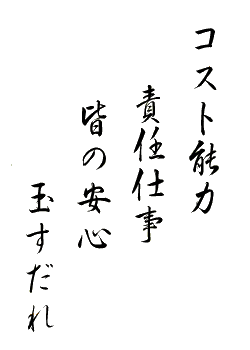 コスト能力
責任仕事
皆の安心
玉すだれ